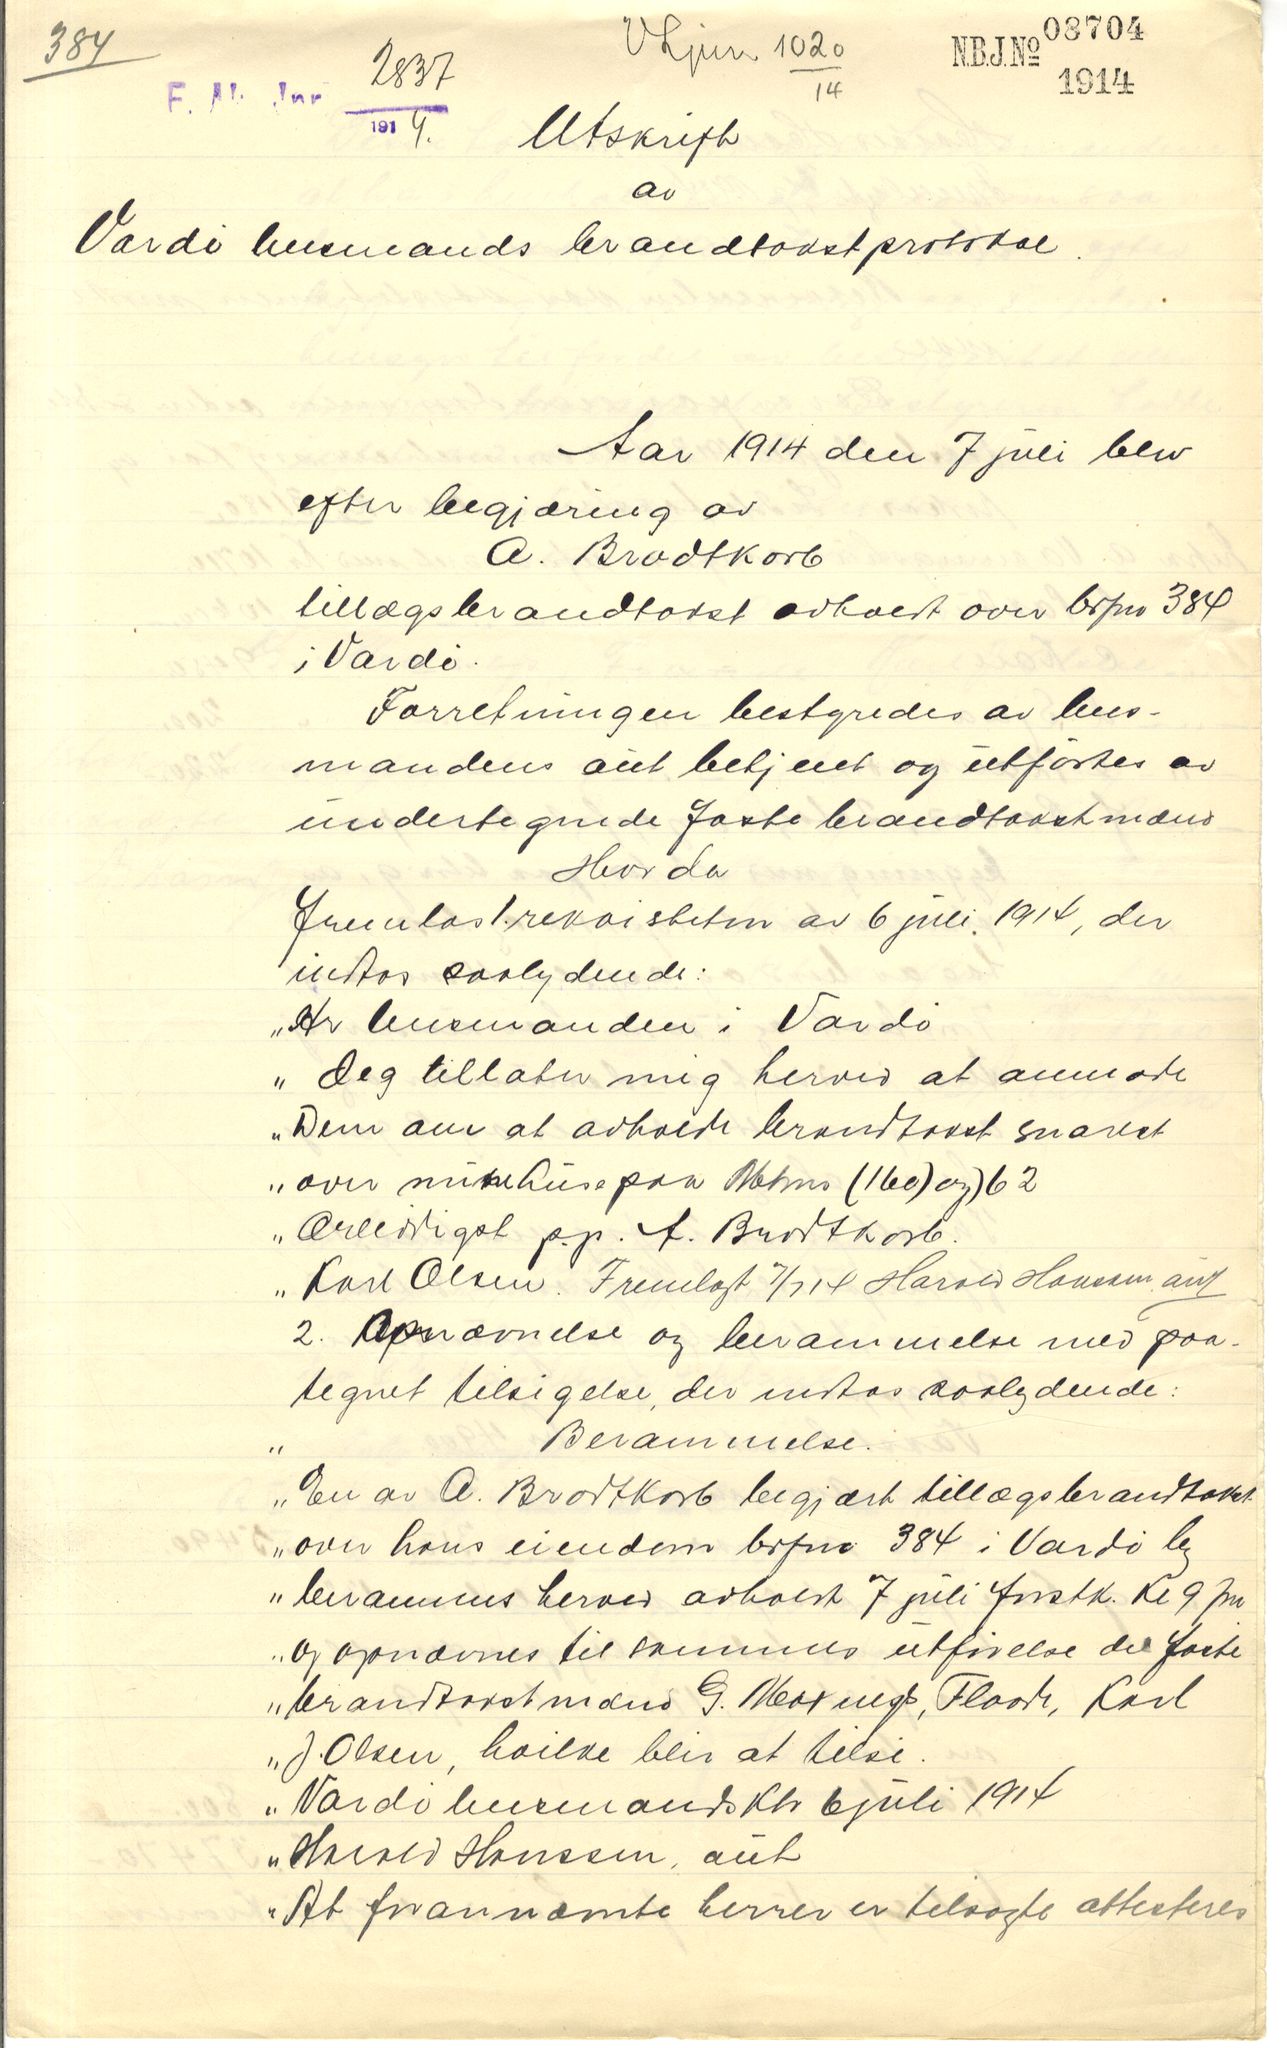 384
V Ljnr. 1020
14
N.B.J.No 03704
1914
2837
191 4.
Utskrift
av
Vardö lensmands brandtakstprotokol.
Aar 1914 den 7 juli blev
efter begjæring av
A. Brodtkorb
tillægsbrandtakst avholdt over brfnr 384
i Vardö.
Forretningen bestyredes av lens-
mandens aut betjent og utförtes av
undertegnede faste brandtakstmænd
Hvorda
fremlas 1. rekvisition av 6 juli 1914, der
indtas saalydende:
„Hr lensmanden i Vardö
„Jeg tillater mig herved at anmode
„Dem om at avholde brandtakst snarest
„over mine huse paa Matrno (160) og 62
„Ærbödigst p.p. A. Brodtkorb.
„Karl Olsen. Fremlagt 7/7 14 Harald Hanssen aut
2. Opnævnelse og berammelse med paa-
tegnet tilsigelse, der indtas saalydende:
„ Berammelse.
„En av A. Brodtkorb begjært tillægsbrandtakst
„over hans eiendom brfnr 384 i Vardö by
„berammes herved avholdt 7 juli förstk. kl 9 fm
„og opnævnes til sammes utförelse de faste
„brandtakstmænd G. , Flood, Karl
„J. Olsen, hvilke blir at tilsi.
„Vardö lensmandsktr 6 juli 1914
„Harald Hanssen, aut
„At forannævnte herrer er tilsagte attesteres